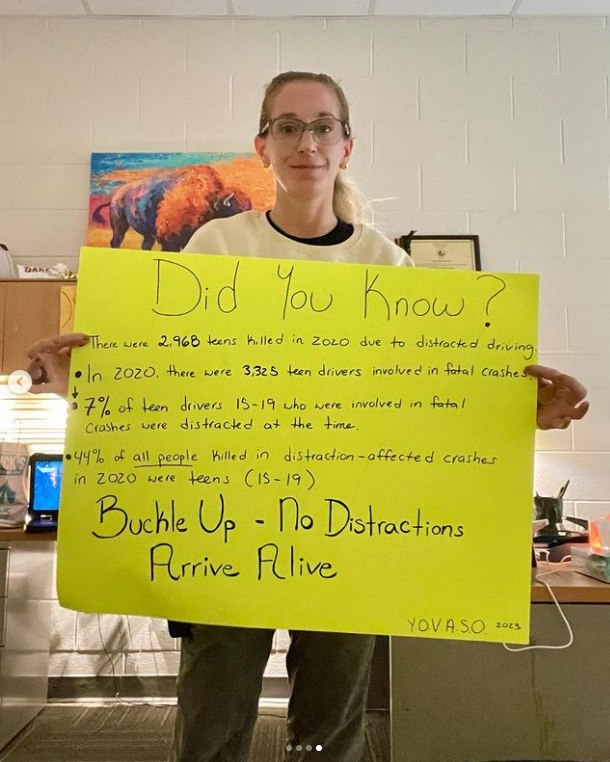 Did You Know?
There were 2,968 teens killed in 2020 due to distracted driving.
• In 2020, there were 3,325 teen drivers involved in fatal crashes.
• 7% of teen drivers 15-19 who were involved in fatal
crashes were distracted at the time.
• 44% of all people killed in distraction-affected crashes
in 2020 were teens (15-19)
Buckle Up - No Distractions
Arrive Alive
Y.O.V.A.S.O. 2023